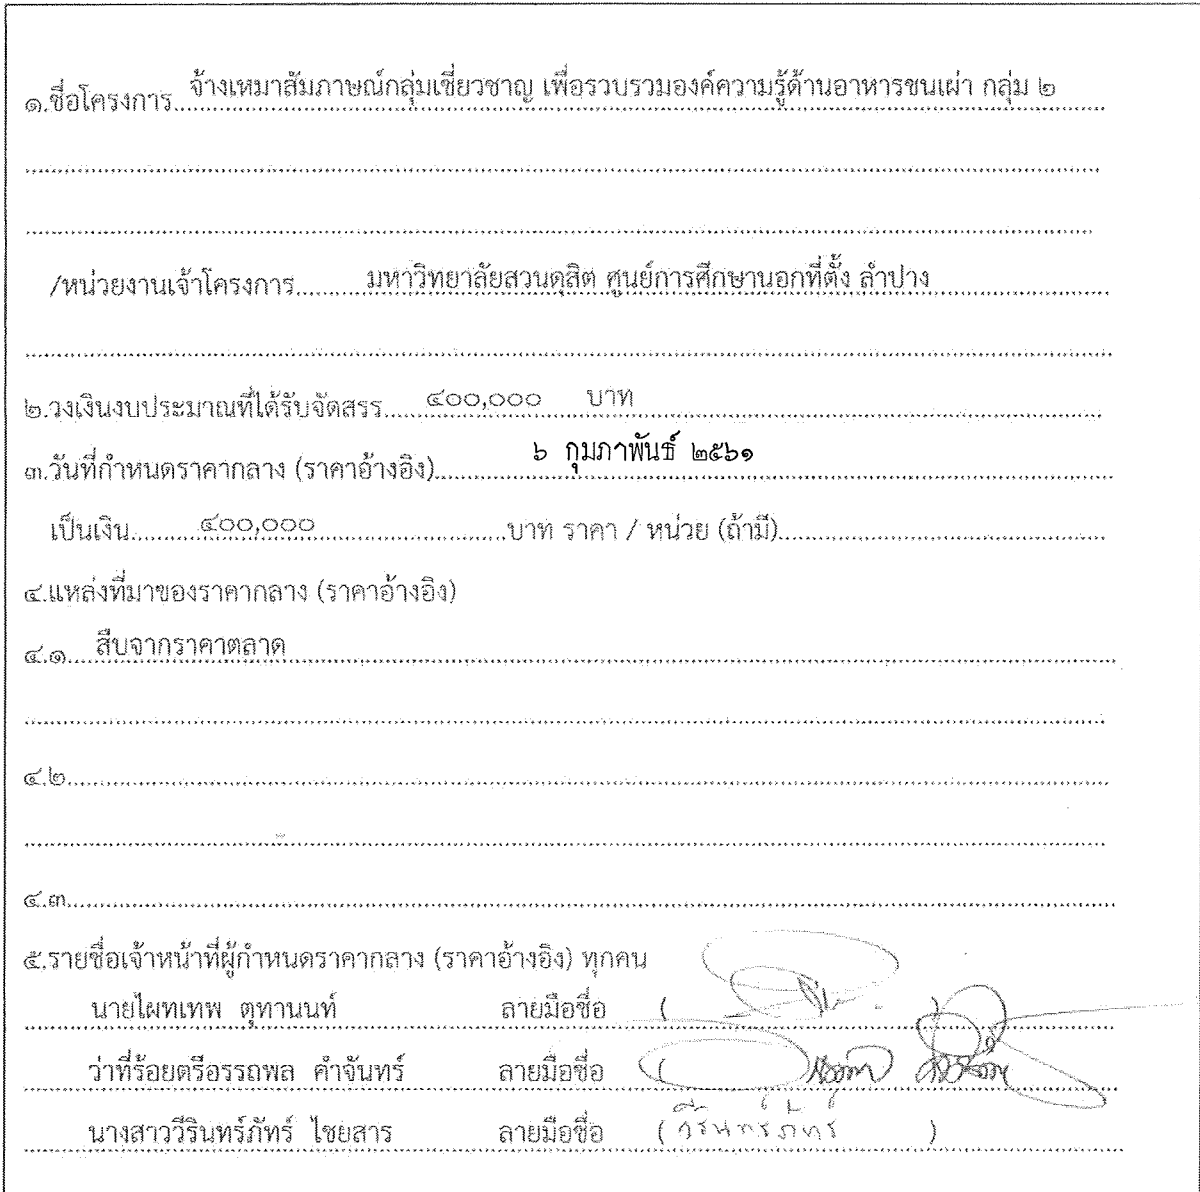 ๑.ชื่อโครงการ จ้างเหมาสัมภาษณ์กลุ่มเชี่ยวชาญ เพื่อรวบรวมองค์ความรู้ด้านอาหารชนเผ่า กลุ่ม ๒
/หน่วยงานเจ้าโครงการ มหาวิทยาลัยสวนดุสิต ศูนย์การศึกษานอกที่ตั้ง ลำปาง
๒.วงเงินงบประมาณที่ได้รับจัดสรร ๔๐๐,๐๐๐ บาท
๓.วันที่กำหนดราคากลาง (ราคาอ้างอิง) ๖ กุมภาพันธ์ ๒๕๖๑
เป็นเงิน ๔๐๐,๐๐๐ บาท ราคา / หน่วย (ถ้ามี)
๔.แหล่งที่มาของราคากลาง (ราคาอ้างอิง)
๔.๑ สืบจากราคาตลาด
๔.๒
๔.๓
๕.รายชื่อเจ้าหน้าที่ผู้กำหนดราคากลาง (ราคาอ้างอิง) ทุกคน
นายไผทเทพ ตุทานนท์ ลายมือชื่อ ( )
ว่าที่ร้อยตรีอรรถพล คำจันทร์ ลายมือชื่อ (
นางสาววีรินทร์ภัทร์ ไชยสาร ลายมือชื่อ ( วีรินทร์ภัทร์ )